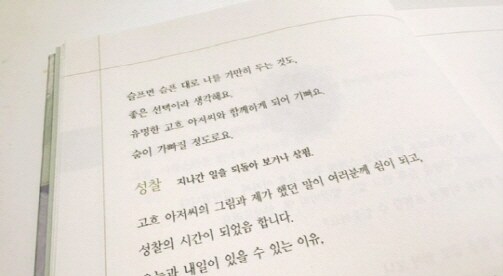 슬프면 슬픈 대로 너를 가만히 두는 것도,
좋은 선택이라 생각해요.
유명한 고흐 아저씨와 함께하게 되어 기뻐요.
숨이 가빠질 정도로요.
성찰 지나간 일을 되돌아 보거나 살핌.
고흐 아저씨의 그림과 제가 했던 말이 여러분께 쉼이 되고,
성찰의 시간이 되었음 합니다.
오늘과 내일이 있을 수 있는 이유,